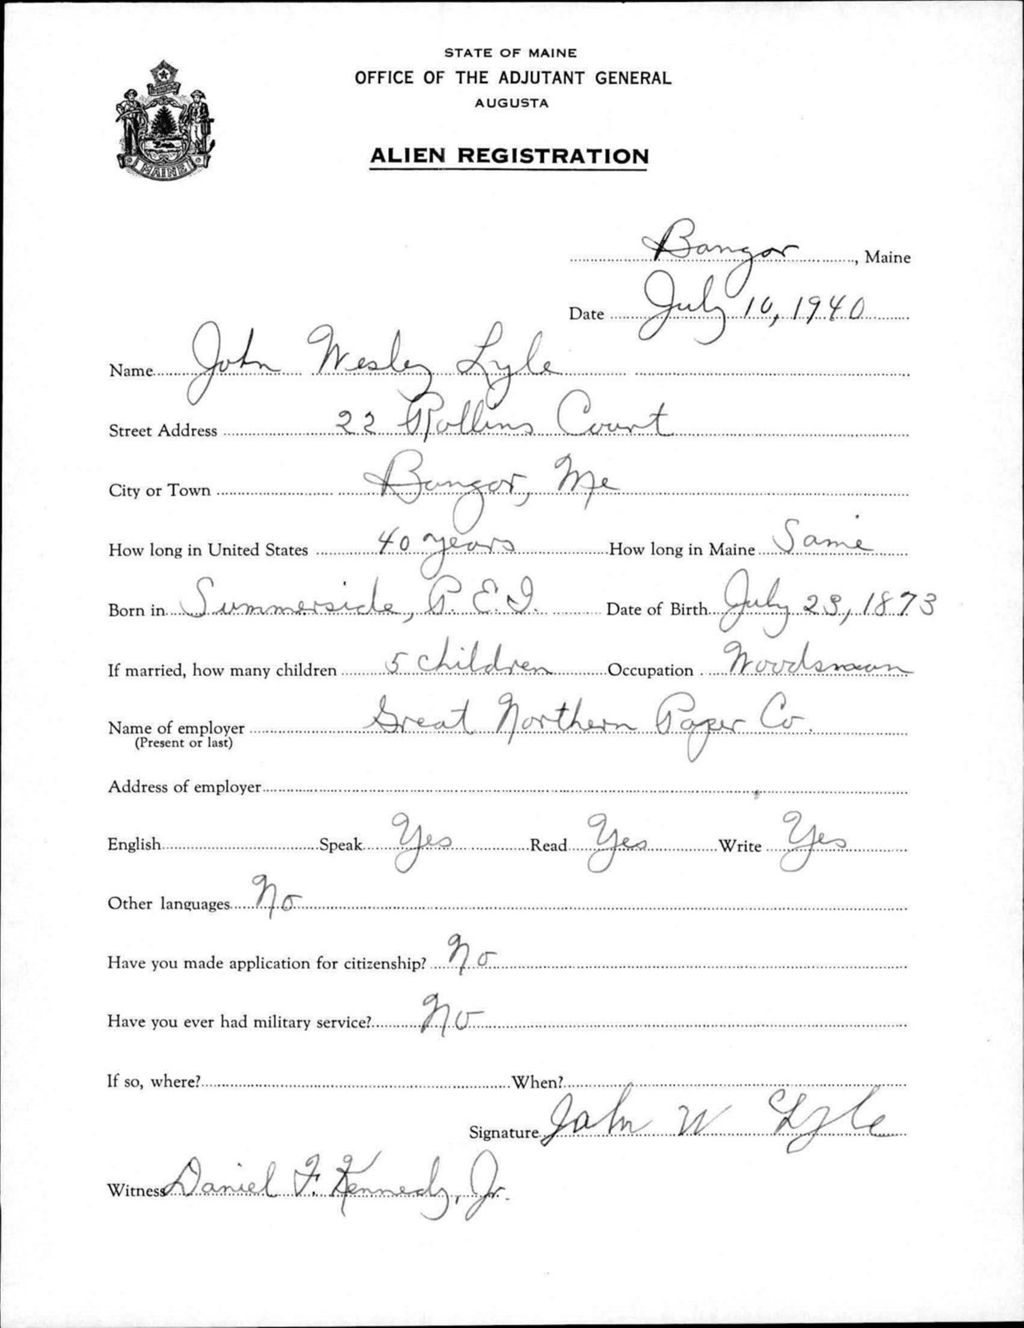 STATE OF MAINE
OFFICE OF THE ADJUTANT GENERAL
AUGUSTA
ALIEN REGISTRATION
MAINE
Bangor, Maine
Date July 10, 1940
Name John Wesley Lyle
Street Address 22 Rollins Court
City or Town Bangor, Me
How long in United States 40 years How long in Maine Same
Born in Summerside, P.E.I. Date of Birth July 23, 1873
If married, how many children 5 children Occupation Woodsman
Name of employer Great Northern Paper Co.
(Present or last)
Address of employer
English Speak Yes Read Yes Write Yes
Other languages No
Have you made application for citizenship? No
Have you ever had military service? No
If so, where? When?
Signature John W Lyle
Witness Daniel F. Kennedy, Jr.